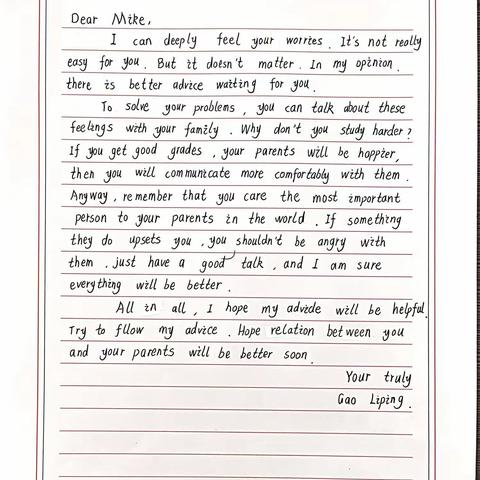 Dear Mike,
I can deeply feel your worries. It's not really
easy for you. But it doesn't matter. In my opinion.
there is better advice waiting for you.
To solve your problems, you can talk about these
feelings with your family. Why don't you study harder?
If you get good grades, your parents will be happier,
then you will communicate more comfortably with them.
Anyway, remember that you care the most important
person to your parents in the world. If something
they do upsets you, you shouldn't be angry with
them. just have a good talk, and I am sure
everything will be better.
All in all, I hope my advide will be helpful.
Try to fllow my advice. Hope relation between you
and your parents will be better soon.
Your truly
Gao Liping.